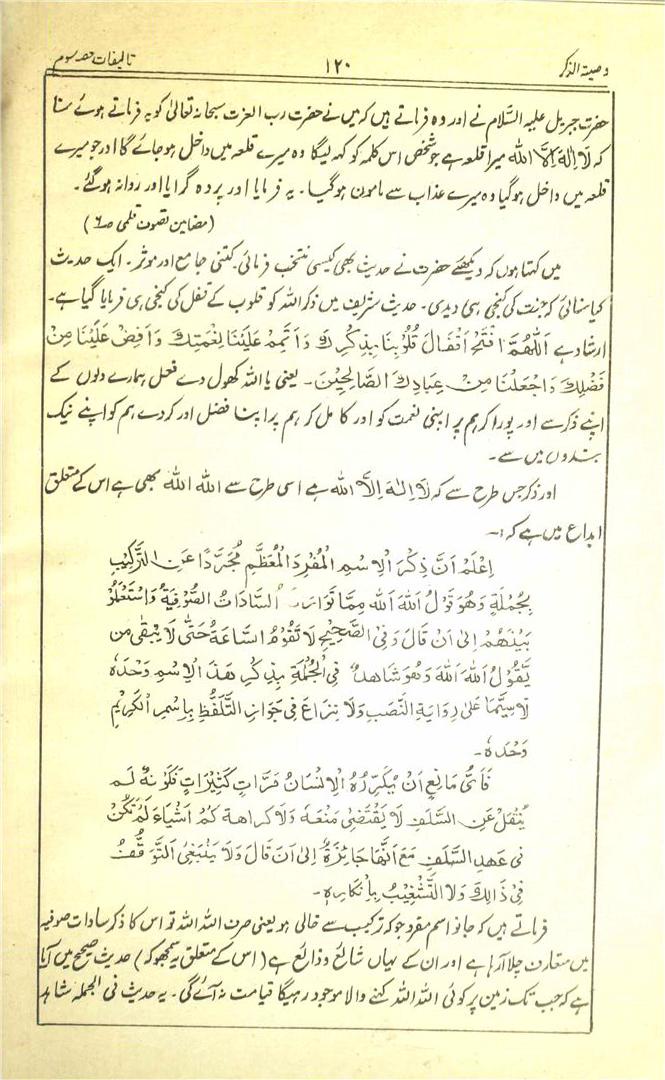 وصیۃ الذکر ۱۲۰ تالیفات حصہ سوم
حضرت جبریل علیہ السّلام نے اور وہ فرماتے ہیں کہ میں نے حضرت رب العزت سبحانہ تعالیٰ کو یہ فرماتے ہوئے سنا
کہ لَا اِلٰہَ اِلَّا اللہ میرا قلعہ ہے جو شخص اس کلمہ کو کہہ لیگا وہ میرے قلعہ میں داخل ہو جائے گا اور جو میرے
قلعہ میں داخل ہو گیا وہ میرے عذاب سے مامون ہو گیا۔ یہ فرمایا اور پردہ گرایا اور روانہ ہو گئے۔
(مضامین تصوف قلمی صـ۶)
میں کہتا ہوں کہ دیکھئے حضرت نے حدیث بھی کیسی منتخب فرمائی۔ کتنی جامع اور موثر۔ ایک حدیث
کیا سنائی کہ جنت کی کنجی ہی دیدی۔ حدیث شریف میں ذکر اللہ کو قلوب کے قفل کی کنجی ہی فرمایا گیا ہے۔
ارشاد ہے اَللّٰھُمَّ افْتَحْ اَقْفَالَ قُلُوْبِنَا بِذِکْرِكَ وَاَتْمِمْ عَلَیْنَا نِعْمَتِكَ وَاَفِضْ عَلَیْنَا مِنْ
فَضْلِكَ وَاجْعَلْنَا مِنْ عِبَادِكَ الصَّالِحِیْنَ۔ یعنی یا اللہ کھول دے قفل ہمارے دلوں کے
اپنے ذکر سے اور پورا کر ہم پر اپنی نعمت کو اور کامل کر ہم پر اپنا فضل اور کر دے ہم کو اپنے نیک
بندوں میں سے۔
اور ذکر جس طرح سے کہ لَا اِلٰہَ اِلَّا اللہ ہے اسی طرح سے اللہ اللہ بھی ہے اس کے متعلق
ابداع میں ہے کہ:۔
اِعْلَمْ اَنَّ ذِکْرَ الْاِسْمِ الْمُفْرِدِ الْمُعَظَّمِ مُجَرَّدًا عَنِ التَّرْکِیْبِ
بِجُمْلَةٍ وَھُوَ قَوْلُ اللہ اللہ مِمَّا تَوَارَثَ السَّادَاتُ الصُّوْفِیَةُ وَاسْتَعْمَلُوْ
بَیْنَھُمْ اِلٰی اَنْ قَالَ وَفِی الصَّحِیْحِ لَا تَقُوْمُ السَّاعَةُ حَتّٰی لَا یَبْقٰی مَن
یَّقُوْلُ اللہَ اللہَ وَھُوَ شَاھِدٌ فِی الْجُمْلَةِ بِذِکْرِ ھَذَ الْاِسْمِ وَحْدَهٗ
لَاسِیَّمَا عَلٰی رِوَایَةِ النَّصَبِ وَلَا نِزَاعَ فِیْ جَوَازِ التَّلَفُّظِ بِاسْمِ الْکَرِیْمِ
وَحْدَهٗ۔
فَاَیُّ مَانِعٍ اَنْ یُکَرِّرَهُ الْاِنْسَانُ مَرَّاتٍ کَثِیْرَاتٍ فَکَوْنُهٗ لَمْ
یُنْقَلْ عَنِ السَّلَفِ لَا یَقْتَضِیْ مَنْعَهٗ وَلَا کَرَاھَةَ کَمْ اَشْیَاءَ لَمْ تَکُنْ
فِیْ عَھْدِ السَّلَفِ مَعَ اَنَّھَا جَائِزَةٌ اِلٰی اَنْ قَالَ وَلَا یَنْبَغِی التَّوَقُّفُ
فِیْ ذَالِكَ وَلَا التَّشْغِیْبُ بِاِنْکَارِهٖ۔
فرماتے ہیں کہ جانو اسم مفرد جو کہ ترکیب سے خالی ہو یعنی صرف اللہ اللہ تو اس کا ذکر سادات صوفیہ
میں متعارف چلا آ رہا ہے اور ان کے یہاں شائع و ذائع ہے (اس کے متعلق یہ سمجھو کہ) حدیث صحیح میں آیا
ہے کہ جب تک زمین پر کوئی اللہ اللہ کہنے والا موجود رہیگا قیامت نہ آئے گی۔ یہ حدیث فی الجملہ شاہد